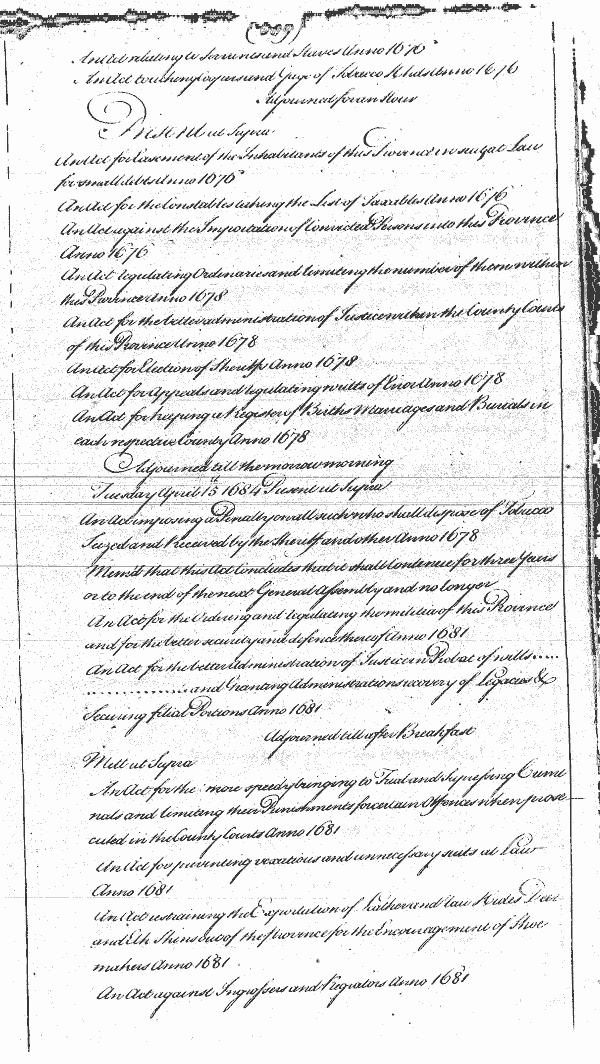 An Act relating to Servants and Slaves Anno 1676
An Act touching Coopers and Gage of Tobacco Hhds Anno 1676
Adjourned for an Hour
Present ut Supra
An Act for Easement of the Inhabitants of this Province in sugat Law
for small debts Anno 1676
An Act for the Constables taking the List of Taxables Anno 1676
An Act against the Importation of Convicted Persons into this Province
Anno 1676
An Act regulating Ordinaries and limiting the number of them within
this Province Anno 1678
An Act for the better administration of Justice within the County Courts
of this Province Anno 1678
An Act for Election of Sheriffs Anno 1678
An Act for Appeals and regulating writts of Error Anno 1678
An Act for keeping a Register of Births Marriages and Burials in
each respective County Anno 1678
Adjourned till the morrow morning
Tuesday April 15 1684 Present ut Supra
An Act imposing a Penalty on all such who shall dispose of Tobacco
Seized and Received by the Sheriff and other Anno 1678
Memd that this Act Concludes that it shall Continue for three Years
or to the end of the next General Assembly and no longer
An Act for the Ordering and regulating the militia of this Province
and for the better security and defence thereof Anno 1681
An Act for the better administration of Justice in Probat of wills .....
.................. and Granting Administrations recovery of Legacies &
Securing filial Portions Anno 1681
Adjourned till after Breakfast
Mett ut Supra
An Act for the more speedy bringing to Trial and Supressing Crimi
nals and limiting their Punishments for certain Offences when prose
cuted in the County Courts Anno 1681
An Act for preventing vexatious and unnecessary suits at Law
Anno 1681
An Act restraining the Exportation of Leather and raw Hides Deer
and Elk Skins out of the Province for the Encouragement of Shoe
makers Anno 1681
An Act against Ingrossers and Regrators Anno 1681